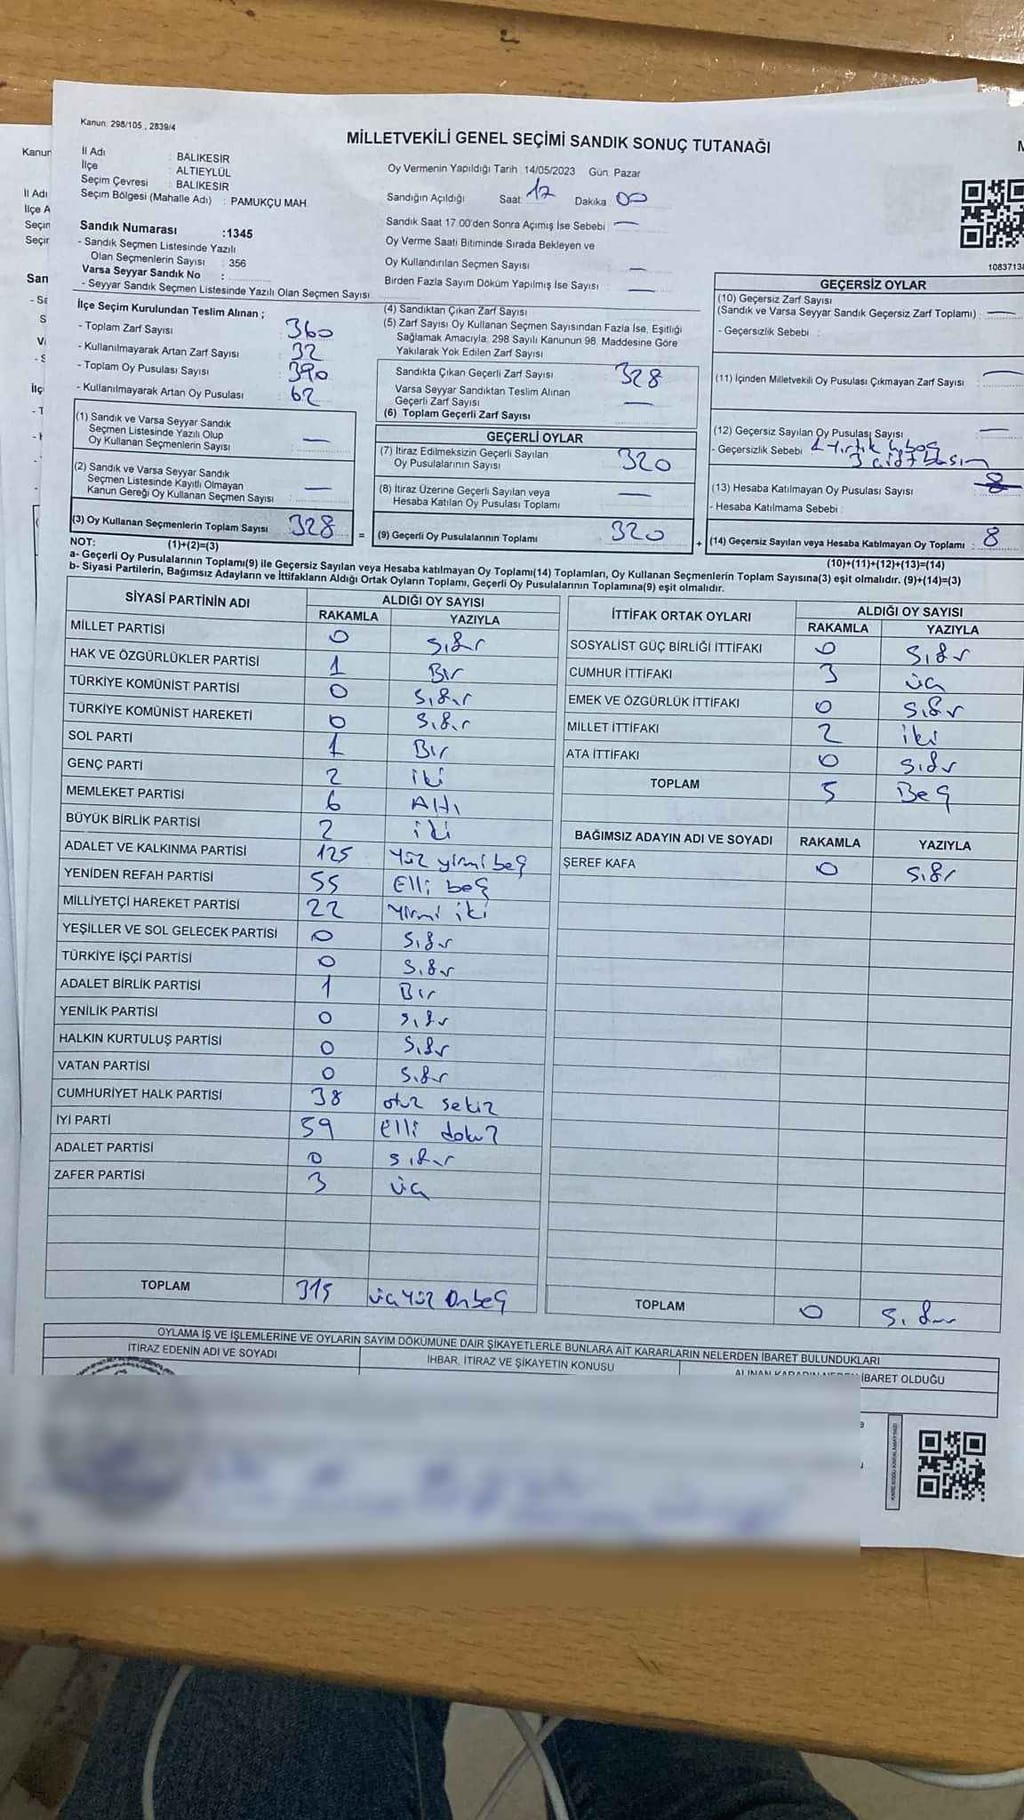 Kanun: 298/105 , 2839/4
MİLLETVEKİLİ GENEL SEÇİMİ SANDIK SONUÇ TUTANAĞI
İl Adı : BALIKESİR
İlçe : ALTIEYLÜL
Seçim Çevresi : BALIKESİR
Seçim Bölgesi (Mahalle Adı) : PAMUKÇU MAH
Sandık Numarası :1345
- Sandık Seçmen Listesinde Yazılı
Olan Seçmenlerin Sayısı : 356
Varsa Seyyar Sandık No :
- Seyyar Sandık Seçmen Listesinde Yazılı Olan Seçmen Sayısı
Oy Vermenin Yapıldığı Tarih 14/05/2023 Gün: Pazar
Sandığın Açıldığı Saat: 17 Dakika 00
Sandık Saat 17:00'den Sonra Açımış İse Sebebi —
Oy Verme Saati Bitiminde Sırada Bekleyen ve
Oy Kullandırılan Seçmen Sayısı —
Birden Fazla Sayım Döküm Yapılmış İse Sayısı —
1083713
İlçe Seçim Kurulundan Teslim Alınan ;
- Toplam Zarf Sayısı 360
- Kullanılmayarak Artan Zarf Sayısı 32
- Toplam Oy Pusulası Sayısı 390
- Kullanılmayarak Artan Oy Pusulası 62
(1) Sandık ve Varsa Seyyar Sandık
Seçmen Listesinde Yazılı Olup
Oy Kullanan Seçmenlerin Sayısı —
(2) Sandık ve Varsa Seyyar Sandık
Seçmen Listesinde Kayıtlı Olmayan
Kanun Gereği Oy Kullanan Seçmen Sayısı —
(3) Oy Kullanan Seçmenlerin Toplam Sayısı 328 =
(4) Sandıktan Çıkan Zarf Sayısı
(5) Zarf Sayısı Oy Kullanan Seçmen Sayısından Fazla İse, Eşitliği
Sağlamak Amacıyla, 298 Sayılı Kanunun 98. Maddesine Göre
Yakılarak Yok Edilen Zarf Sayısı
Sandıkta Çıkan Geçerli Zarf Sayısı 328
Varsa Seyyar Sandıktan Teslim Alınan
Geçerli Zarf Sayısı —
(6) Toplam Geçerli Zarf Sayısı
GEÇERLİ OYLAR
(7) İtiraz Edilmeksizin Geçerli Sayılan
Oy Pusulalarının Sayısı 320
(8) İtiraz Üzerine Geçerli Sayılan veya
Hesaba Katılan Oy Pusulası Toplamı —
(9) Geçerli Oy Pusulalarının Toplamı 320 +
GEÇERSİZ OYLAR
(10) Geçersiz Zarf Sayısı
(Sandık ve Varsa Seyyar Sandık Geçersiz Zarf Toplamı) : —
- Geçersizlik Sebebi :
(11) İçinden Milletvekili Oy Pusulası Çıkmayan Zarf Sayısı —
(12) Geçersiz Sayılan Oy Pusulası Sayısı —
- Geçersizlik Sebebi
3 çift basım
(13) Hesaba Katılmayan Oy Pusulası Sayısı 8
- Hesaba Katılmama Sebebi :
(14) Geçersiz Sayılan veya Hesaba Katılmayan Oy Toplamı : 8
NOT: (1)+(2)=(3) (10)+(11)+(12)+(13)=(14)
a- Geçerli Oy Pusulalarının Toplamı(9) ile Geçersiz Sayılan veya Hesaba katılmayan Oy Toplamı(14) Toplamları, Oy Kullanan Seçmenlerin Toplam Sayısına(3) eşit olmalıdır. (9)+(14)=(3)
b- Siyasi Partilerin, Bağımsız Adayların ve İttifakların Aldığı Ortak Oyların Toplamı, Geçerli Oy Pusulalarının Toplamına(9) eşit olmalıdır.
SİYASİ PARTİNİN ADI ALDIĞI OY SAYISI
RAKAMLA YAZIYLA
MİLLET PARTİSİ 0 Sıfır
HAK VE ÖZGÜRLÜKLER PARTİSİ 1 Bir
TÜRKİYE KOMÜNİST PARTİSİ 0 Sıfır
TÜRKİYE KOMÜNİST HAREKETİ 0 Sıfır
SOL PARTİ 1 Bir
GENÇ PARTİ 2 iki
MEMLEKET PARTİSİ 6 Altı
BÜYÜK BİRLİK PARTİSİ 2 iki
ADALET VE KALKINMA PARTİSİ 125 Yüz yirmi beş
YENİDEN REFAH PARTİSİ 55 Elli beş
MİLLİYETÇİ HAREKET PARTİSİ 22 Yirmi iki
YEŞİLLER VE SOL GELECEK PARTİSİ 0 Sıfır
TÜRKİYE İŞÇİ PARTİSİ 0 Sıfır
ADALET BİRLİK PARTİSİ 1 Bir
YENİLİK PARTİSİ 0 Sıfır
HALKIN KURTULUŞ PARTİSİ 0 Sıfır
VATAN PARTİSİ 0 Sıfır
CUMHURİYET HALK PARTİSİ 38 otuz sekiz
İYİ PARTİ 59 Elli dokuz
ADALET PARTİSİ 0 Sıfır
ZAFER PARTİSİ 3 üç
TOPLAM 315 üç yüz onbeş
İTTİFAK ORTAK OYLARI ALDIĞI OY SAYISI
RAKAMLA YAZIYLA
SOSYALİST GÜÇ BİRLİĞİ İTTİFAKI 0 Sıfır
CUMHUR İTTİFAKI 3 üç
EMEK VE ÖZGÜRLÜK İTTİFAKI 0 Sıfır
MİLLET İTTİFAKI 2 iki
ATA İTTİFAKI 0 Sıfır
TOPLAM 5 Beş
BAĞIMSIZ ADAYIN ADI VE SOYADI RAKAMLA YAZIYLA
ŞEREF KAFA 0 Sıfır
TOPLAM 0 Sıfır
OYLAMA İŞ VE İŞLEMLERİNE VE OYLARIN SAYIM DÖKÜMÜNE DAİR ŞİKAYETLERLE BUNLARA AİT KARARLARIN NELERDEN İBARET BULUNDUKLARI
İTİRAZ EDENİN ADI VE SOYADI İHBAR, İTİRAZ VE ŞİKAYETİN KONUSU ALINAN KARARIN NEDEN İBARET OLDUĞU